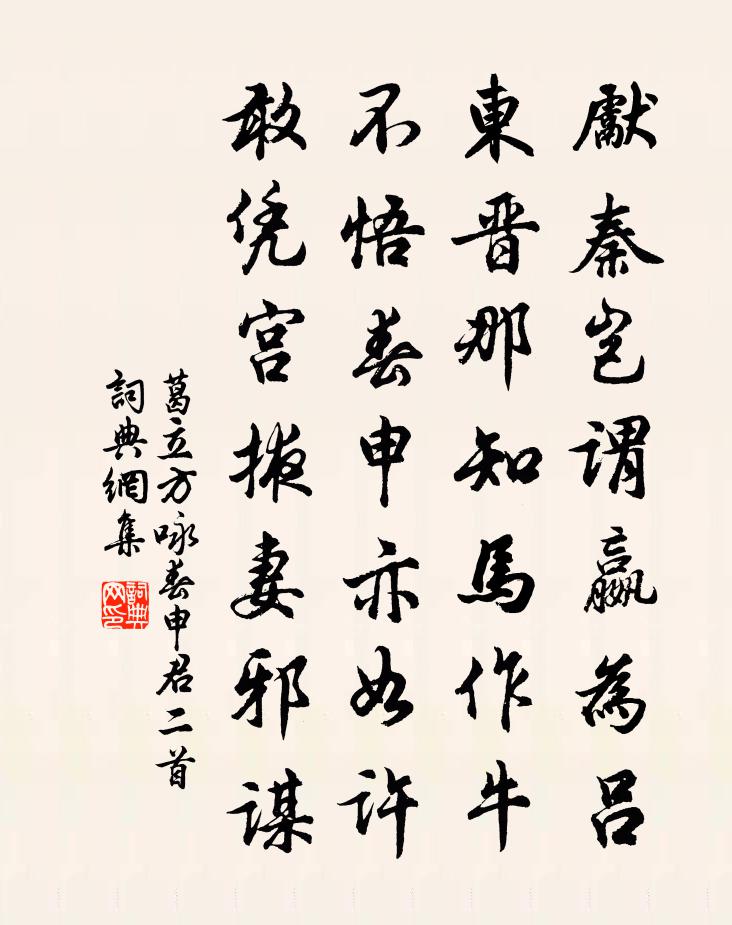 獻秦豈謂嬴為呂
東晉那知馬作牛
不悟春申亦如許
敢凭宮掖妻邪謀
葛立方咏春申君二首
詞典網集
詞典网印